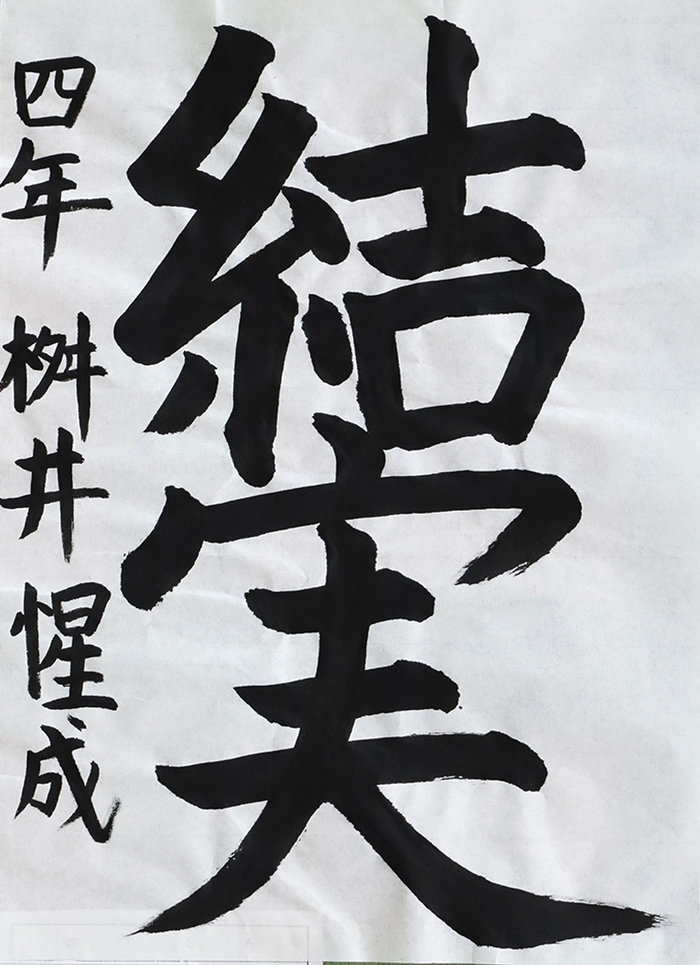 結実
四年 桝井 惺成